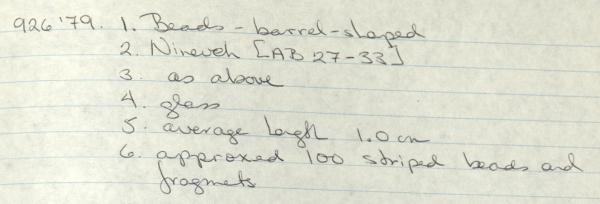 926'79. 1. Beads - barrel-shaped
2. Nineveh [AB 27-33]
3. as above
4. glass
5. average length 1.0 cm
6. approxed 100 striped beads and
fragments